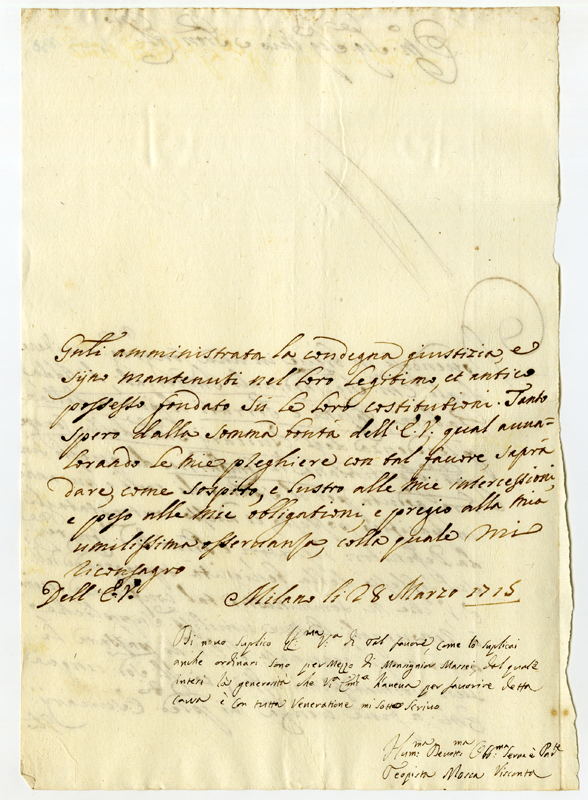 Gusti amministrata la condegna giustizia, e
sijno mantenuti nel loro legitimo, et antico
possesso fondato sù le loro costitutioni. Tanto
spero dalla somma bontà dell'E.V. qual auua-
lorando le mie pleghiere con tal fauore, saprà
dare, come sospiro, e lustro alle mie intercessioni,
e peso alle mie obligationi, e pregio alla mia
umilissima osseruanza, colla quale mi
riconsagro
Dell'E.V. Milano li 28 Marzo 1715
Di nouo suplico V.ra di tal fauore, come lo suplicai
anche ordinari sono per mezo di Monsignior Massei, dal quale
intesi la generosità che V.a Em.a haueua per fauorire detta
causa è con tutta Veneratione mi sotto scriuo
Hum.ma Deuot.ma Obb.ma Serua è Par.te
Teopista Mosca Visconta